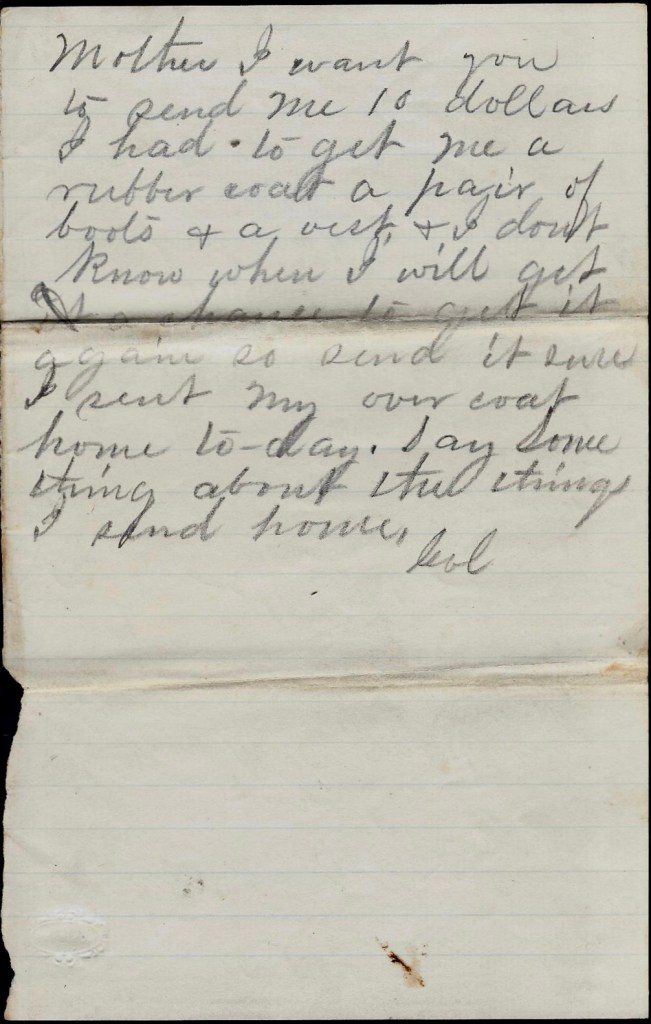 Mother I want you
to send me 10 dollars
I had to get me a
rubber coat a pair of
boots & a vest, & I dont
know when I will get
a chance to get it
again so send it sure
I sent my over coat
home to-day. Say some
thing about the things
I send home.